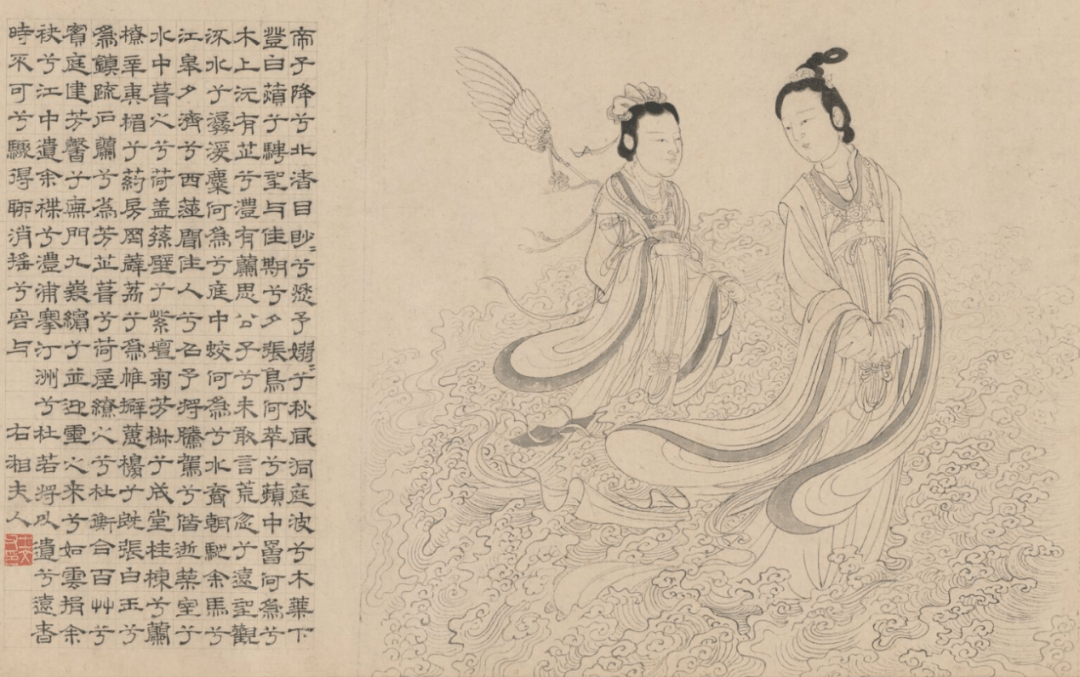 帝子降兮北渚目眇〻兮愁予嫋〻兮秋風洞庭波兮木葉下
登白薠兮騁望与佳期兮夕張鳥何萃兮蘋中罾何為兮
木上沅有芷兮澧有蘭思公子兮未敢言荒忽兮遠望觀
流水兮潺湲麋何為兮庭中蛟何為兮水裔朝馳余馬兮
江皋夕濟兮西澨聞佳人兮召予將騰駕兮偕逝築室兮
水中葺之兮荷盖蓀壁兮紫壇匊芳椒兮成堂桂棟兮蘭
橑辛夷楣兮葯房罔薜荔兮為帷擗蕙櫋兮既張白玉兮
為鎮疏石蘭兮為芳芷葺兮荷屋繚之兮杜衡合百艸兮
實庭建芳馨兮廡門九嶷繽兮並迎靈之來兮如雲捐余
袂兮江中遺余褋兮澧浦搴汀洲兮杜若將以遺兮遠者
時不可兮驟得聊消搖兮容与 右湘夫人